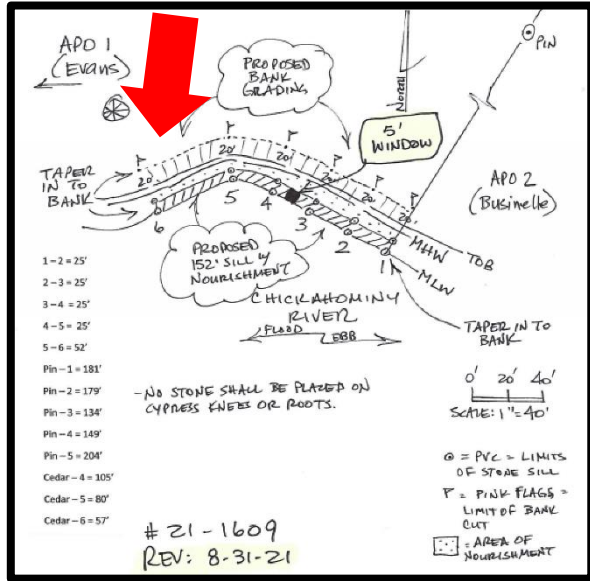 APO 1
(Evans)
PROPOSED
BANK
GRADING
NORTH
PIN
5'
WINDOW
APO 2
(Businelle)
20'
20'
20'
20'
20'
TAPER
IN TO
BANK
6
5
4
3
2
1
MHW
TOB
MLW
PROPOSED
152' SILL W/
NOURISHMENT
CHICKAHOMINY
RIVER
FLOOD
EBB
TAPER IN TO
BANK
1-2 = 25'
2-3 = 25'
3-4 = 25'
4-5 = 25'
5-6 = 52'
Pin-1 = 181'
Pin-2 = 179'
Pin-3 = 134'
Pin-4 = 149'
Pin-5 = 204'
Cedar-4 = 105'
Cedar-5 = 80'
Cedar-6 = 57'
-NO STONE SHALL BE PLACED ON
CYPRESS KNEES OR ROOTS.
0' 20' 40'
SCALE: 1"=40'
= PVC = LIMITS
OF STONE SILL
= PINK FLAGS =
LIMIT OF BANK
CUT
= AREA OF
NOURISHMENT
# 21-1609
REV: 8-31-21